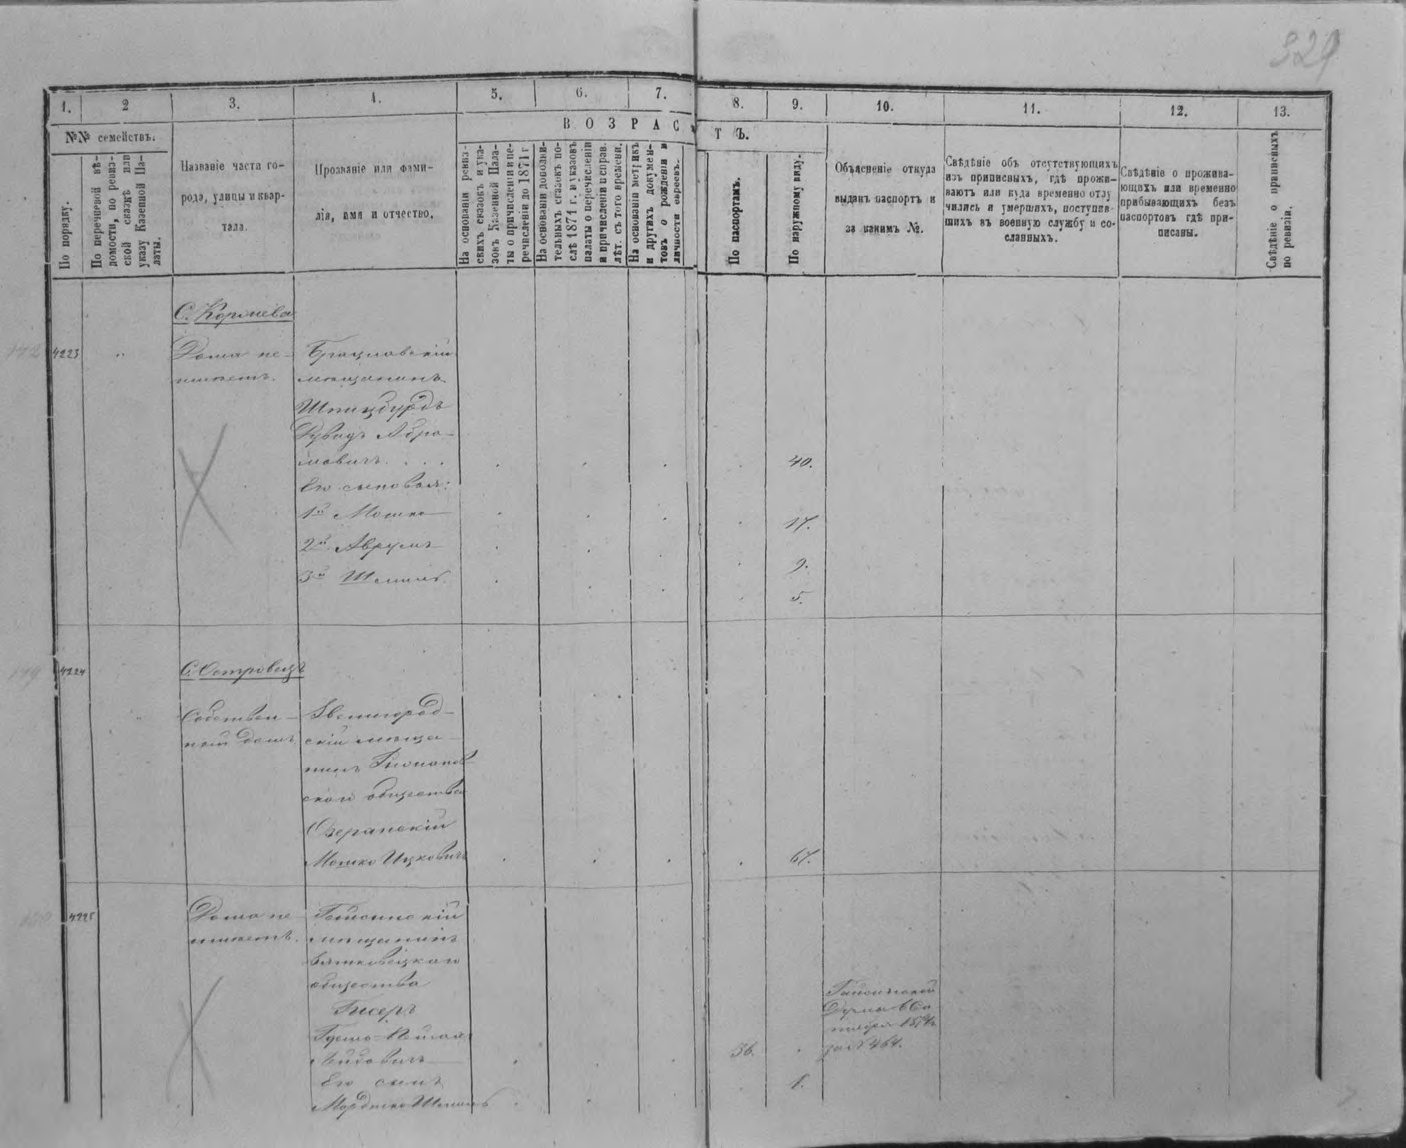 329
1. 2 3. 4. 5. 6. 7. 8. 9. 10. 11. 12. 13.
№№ семействъ.
В О З Р А С Т Ъ.
По порядку.
По перечневой вѣ-
домости, по ревиз-
ской сказкѣ или
указу Казенной Па-
латы.
Названіе части го-
рода, улицы и квар-
тала.
Прозваніе или фами-
лія, имя и отчество.
На основаніи ревиз-
скихъ сказокъ и ука-
зовъ Казенной Пала-
ты о причисленіи и пе-
речисленіи до 1871 г
На основаніи дополни-
тельныхъ сказокъ по-
слѣ 1871 г. и указовъ
палаты о перечисленіи
и причисленіи и справ.
лѣт. съ того времени.
На основаніи метрикъ
и другихъ докумен-
товъ о рожденіи и
личности евреевъ.
По паспортамъ.
По наружному виду.
Объясненіе откуда
выданъ паспортъ и
за какимъ №.
Свѣдѣніе объ отсутствующихъ
изъ приписныхъ, гдѣ прожи-
ваютъ или куда временно отлу
чились и умершихъ, поступив-
шихъ въ военную службу и со-
сланныхъ.
Свѣдѣніе о прожива-
ющихъ или временно
прибывающихъ безъ
паспортовъ гдѣ при-
писаны.
Свѣдѣніе о приписныхъ
по ревизіи.
С. Королiвка
4223 Дома не- Брацлавскій
имѣетъ. мѣщанинъ
Шпицбурдъ
Дувидъ Абра-
мовичъ 40.
Его сыновья:
1й Мошко 17.
2й Аврумъ 9.
3й Шмиль 5.
4224 С. Островецъ
Собствен- Звенигород-
ный домъ скій мѣща-
нинъ
скаго общества
Озерянскій
Мошко Ицковичъ 67.
4225 Дома не- Гайсинскій
имѣетъ. мѣщанинъ
общества
Его сынъ 1.
Мордко Шмиль
36.
Гайсинской
Думы
за № 464.